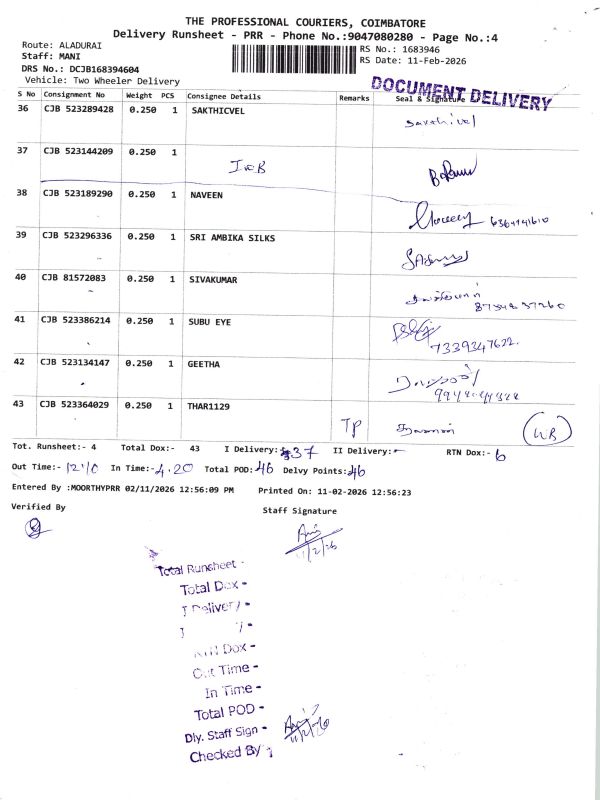 THE PROFESSIONAL COURIERS, COIMBATORE
Delivery Runsheet - PRR - Phone No.:9047080280 - Page No.:4
Route: ALADURAI
Staff: MANI
DRS No.: DCJB168394604
Vehicle: Two Wheeler Delivery
RS No.: 1683946
RS Date: 11-Feb-2026
DOCUMENT DELIVERY
S No Consignment No Weight PCS Consignee Details Remarks Seal & Signature
36 CJB 523289428 0.250 1 SAKTHICVEL Sakthivel
37 CJB 523144209 0.250 1
38 CJB 523189290 0.250 1 NAVEEN Naveen
39 CJB 523296336 0.250 1 SRI AMBIKA SILKS
40 CJB 81572083 0.250 1 SIVAKUMAR
41 CJB 523386214 0.250 1 SUBU EYE 7339347622
42 CJB 523134147 0.250 1 GEETHA
43 CJB 523364029 0.250 1 THAR1129 TP
Tot. Runsheet:- 4 Total Dox:- 43 I Delivery:- 37 II Delivery:- RTN Dox:- 6
Out Time:- 12.10 In Time:- 4.20 Total POD: 46 Delvy Points: 46
Entered By :MOORTHYPRR 02/11/2026 12:56:09 PM Printed On: 11-02-2026 12:56:23
Verified By Staff Signature
11/2/26
Total Runsheet -
Total Dox -
I Delivery -
Dox -
Out Time -
In Time -
Total POD -
Dly. Staff Sign - 11/2/26
Checked By